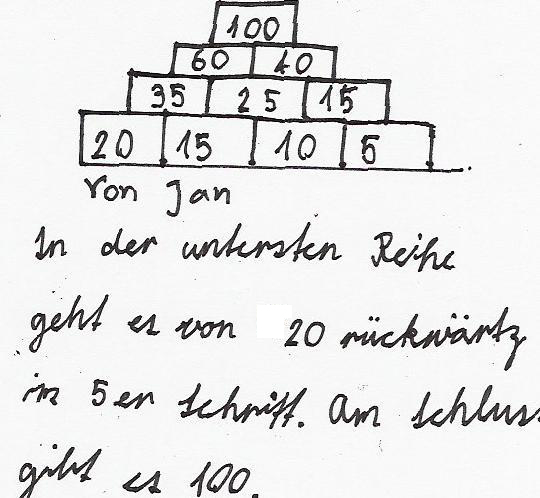 100
60 40
35 25 15
20 15 10 5
von Jan
In der untersten Reihe
geht es von 20 rückwärtz
im 5er schritt. Am schluss
gibt es 100.